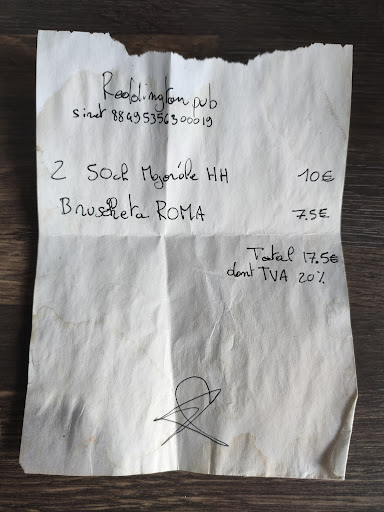 Reddington pub
siret 88495356300019
2 50cl Mogn'de HH 10€
Bruscheta ROMA 7.5€
Total 17.5€
dont TVA 20%